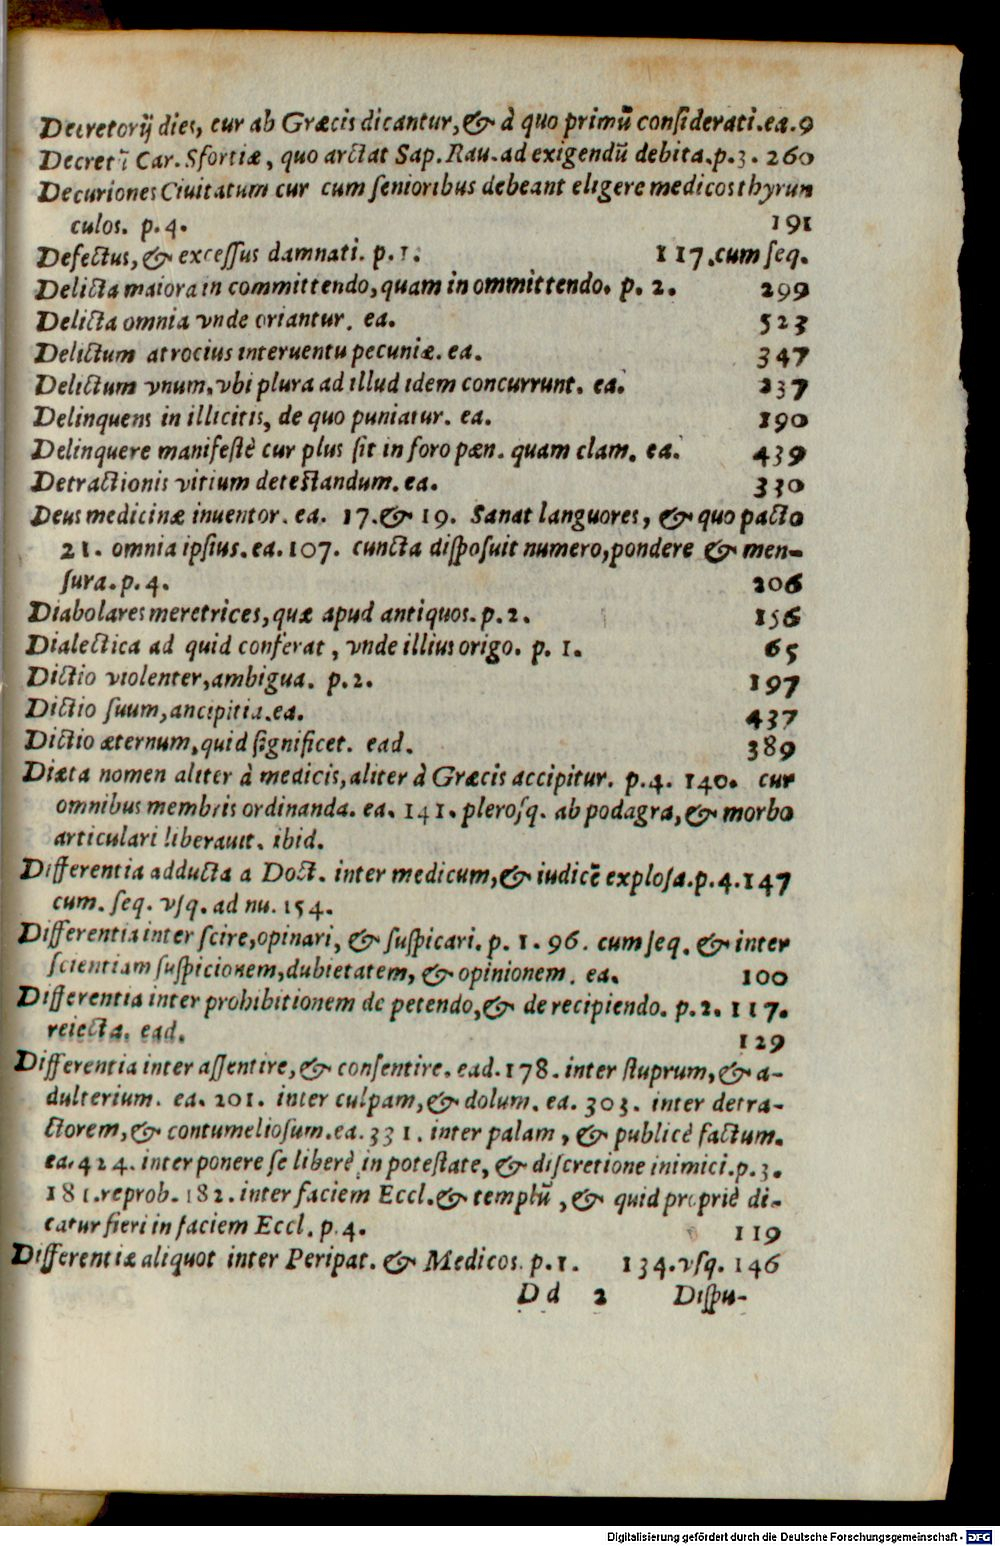 Decretorij dies, cur ab Græcis dicantur, & à quo primũ considerati.ea.9
Decretũ Car. Sfortiæ, quo arctat Sap. Rau. ad exigendũ debita.p.3. 260
Decuriones Ciuitatum cur cum senioribus debeant eligere medicos thyrun
culos. p.4. 191
Defectus, & excessus damnati. p.1. 117.cum seq.
Delicta maiora in committendo, quam in ommittendo. p. 2. 299
Delicta omnia vnde oriantur. ea. 523
Delictum atrocius interuentu pecuniæ. ea. 347
Delictum vnum, vbi plura ad illud idem concurrunt. ea. 237
Delinquens in illicitis, de quo puniatur. ea. 190
Delinquere manifestè cur plus sit in foro pæn. quam clam. ea. 439
Detractionis vitium detestandum. ea. 330
Deus medicinæ inuentor. ea. 17. & 19. Sanat languores, & quo pacto
21. omnia ipsius. ea. 107. cuncta disposuit numero, pondere & men-
sura. p. 4. 206
Diabolares meretrices, quæ apud antiquos. p. 2. 156
Dialectica ad quid conferat, vnde illius origo. p. 1. 65
Dictio violenter, ambigua. p. 2. 197
Dictio suum, ancipitia. ea. 437
Dictio æternum, quid significet. ead. 389
Diæta nomen aliter à medicis, aliter à Græcis accipitur. p.4. 140. cur
omnibus membris ordinanda. ea. 141. plerosq. ab podagra, & morbo
articulari liberauit. ibid.
Differentia adducta a Doct. inter medicum, & iudicẽ explosa.p.4.147
cum. seq. vsq. ad nu. 154.
Differentia inter scire, opinari, & suspicari. p. 1. 96. cum seq. & inter
scientiam suspicionem, dubietatem, & opinionem. ea. 100
Differentia inter prohibitionem de petendo, & de recipiendo. p.2. 117.
reiecta. ead. 129
Differentia inter assentire, & consentire. ead. 178. inter stuprum, & a-
dulterium. ea. 201. inter culpam, & dolum. ea. 303. inter detra-
ctorem, & contumeliosum. ea. 331. inter palam, & publicè factum.
ea. 424. inter ponere se liberè in potestate, & discretione inimici.p.3.
181.reprob. 182. inter faciem Eccl. & templũ, & quid propriè di-
catur fieri in faciem Eccl. p. 4. 119
Differentiæ aliquot inter Peripat. & Medicos. p. 1. 134. vsq. 146
Dd 2 Dispu-
Digitalisierung gefördert durch die Deutsche Forschungsgemeinschaft - DFG